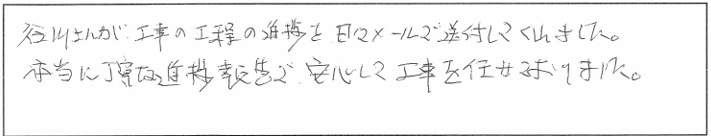 谷川さんが工事の工程の進捗を日々メールで送付してくれました。
本当に丁寧な進捗報告で、安心して工事を任せられました。